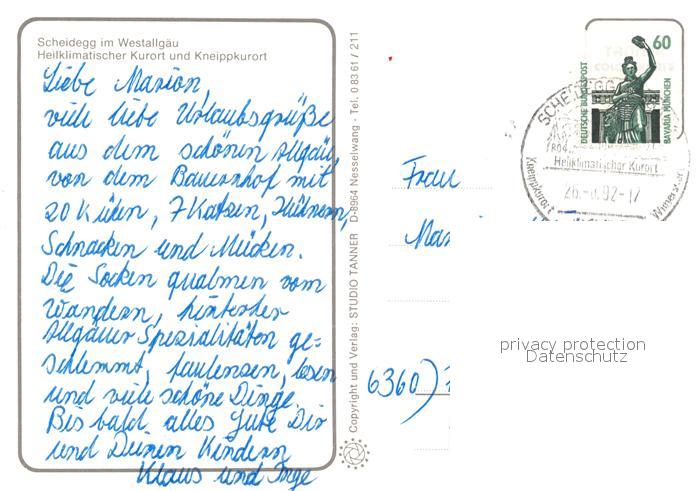 Scheidegg im Westallgäu
Heilklimatischer Kurort und Kneippkurort
Liebe Marion,
viele liebe Urlaubsgrüße
aus dem schönen Allgäu,
von dem Bauernhof mit
20 Kühen, 7 Katzen, Hühnern,
Schnacken und Mücken.
Die Socken qualmen vom
Wandern, hinterher
Allgäuer Spezialitäten ge-
schlemmt, faulenzen, lesen
und viele schöne Dinge.
Bis bald alles Gute Dir
und Deinen Kindern
Klaus und Inge
Copyright und Verlag: STUDIO TANNER D-8964 Nesselwang - Tel. 0 83 61 / 211
Frau
6360)
60
DEUTSCHE BUNDESPOST
BAVARIA MÜNCHEN
SCHEIDEGG
Heilklimatischer Kurort
Kneippkurort
privacy protection
Datenschutz